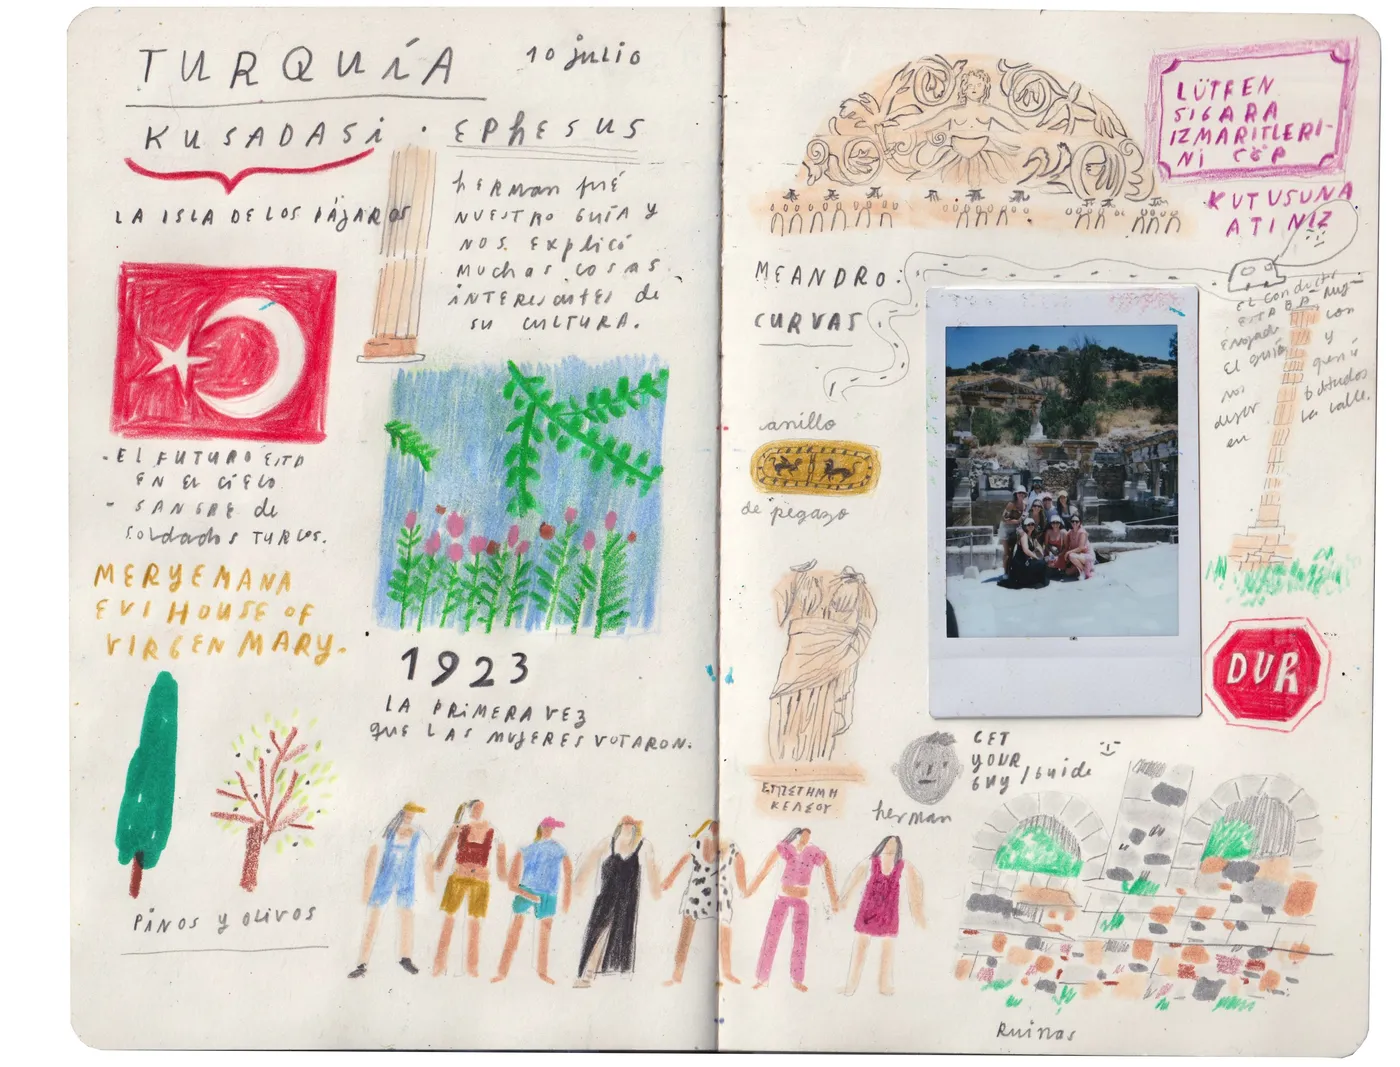 TURQUÍA
10 julio
KUSADASI · EPHESUS
LA ISLA DE LOS PÁJAROS
HERMAN FUÉ
NUESTRO GUÍA Y
NOS EXPLICÓ
MUCHAS COSAS
INTERESANTES DE
SU CULTURA.
-EL FUTURO ESTÁ
EN EL CIELO
- SANGRE de
SOLDADOS TURCOS.
MERYEMANA
EVI HOUSE OF
VIRGEN MARY.
1923
LA PRIMERA VEZ
QUE LAS MUJERES VOTARON.
PINOS Y OLIVOS
LÜTFEN
SIGARA
IZMARITLERI-
NI ÇÖP
KUTUSUNA
ATINIZ
MEANDRO:
CURVAS
El conductor
ESTÁ
enojado con
El guía y
nos
dejar botados
en la calle.
anillo
de pegazo
ΕΠΙΣΤΗΜΗ
ΚΕΛΣΟΥ
DUR
GET
YOUR
GUY/GUIDE
herman
Ruinas